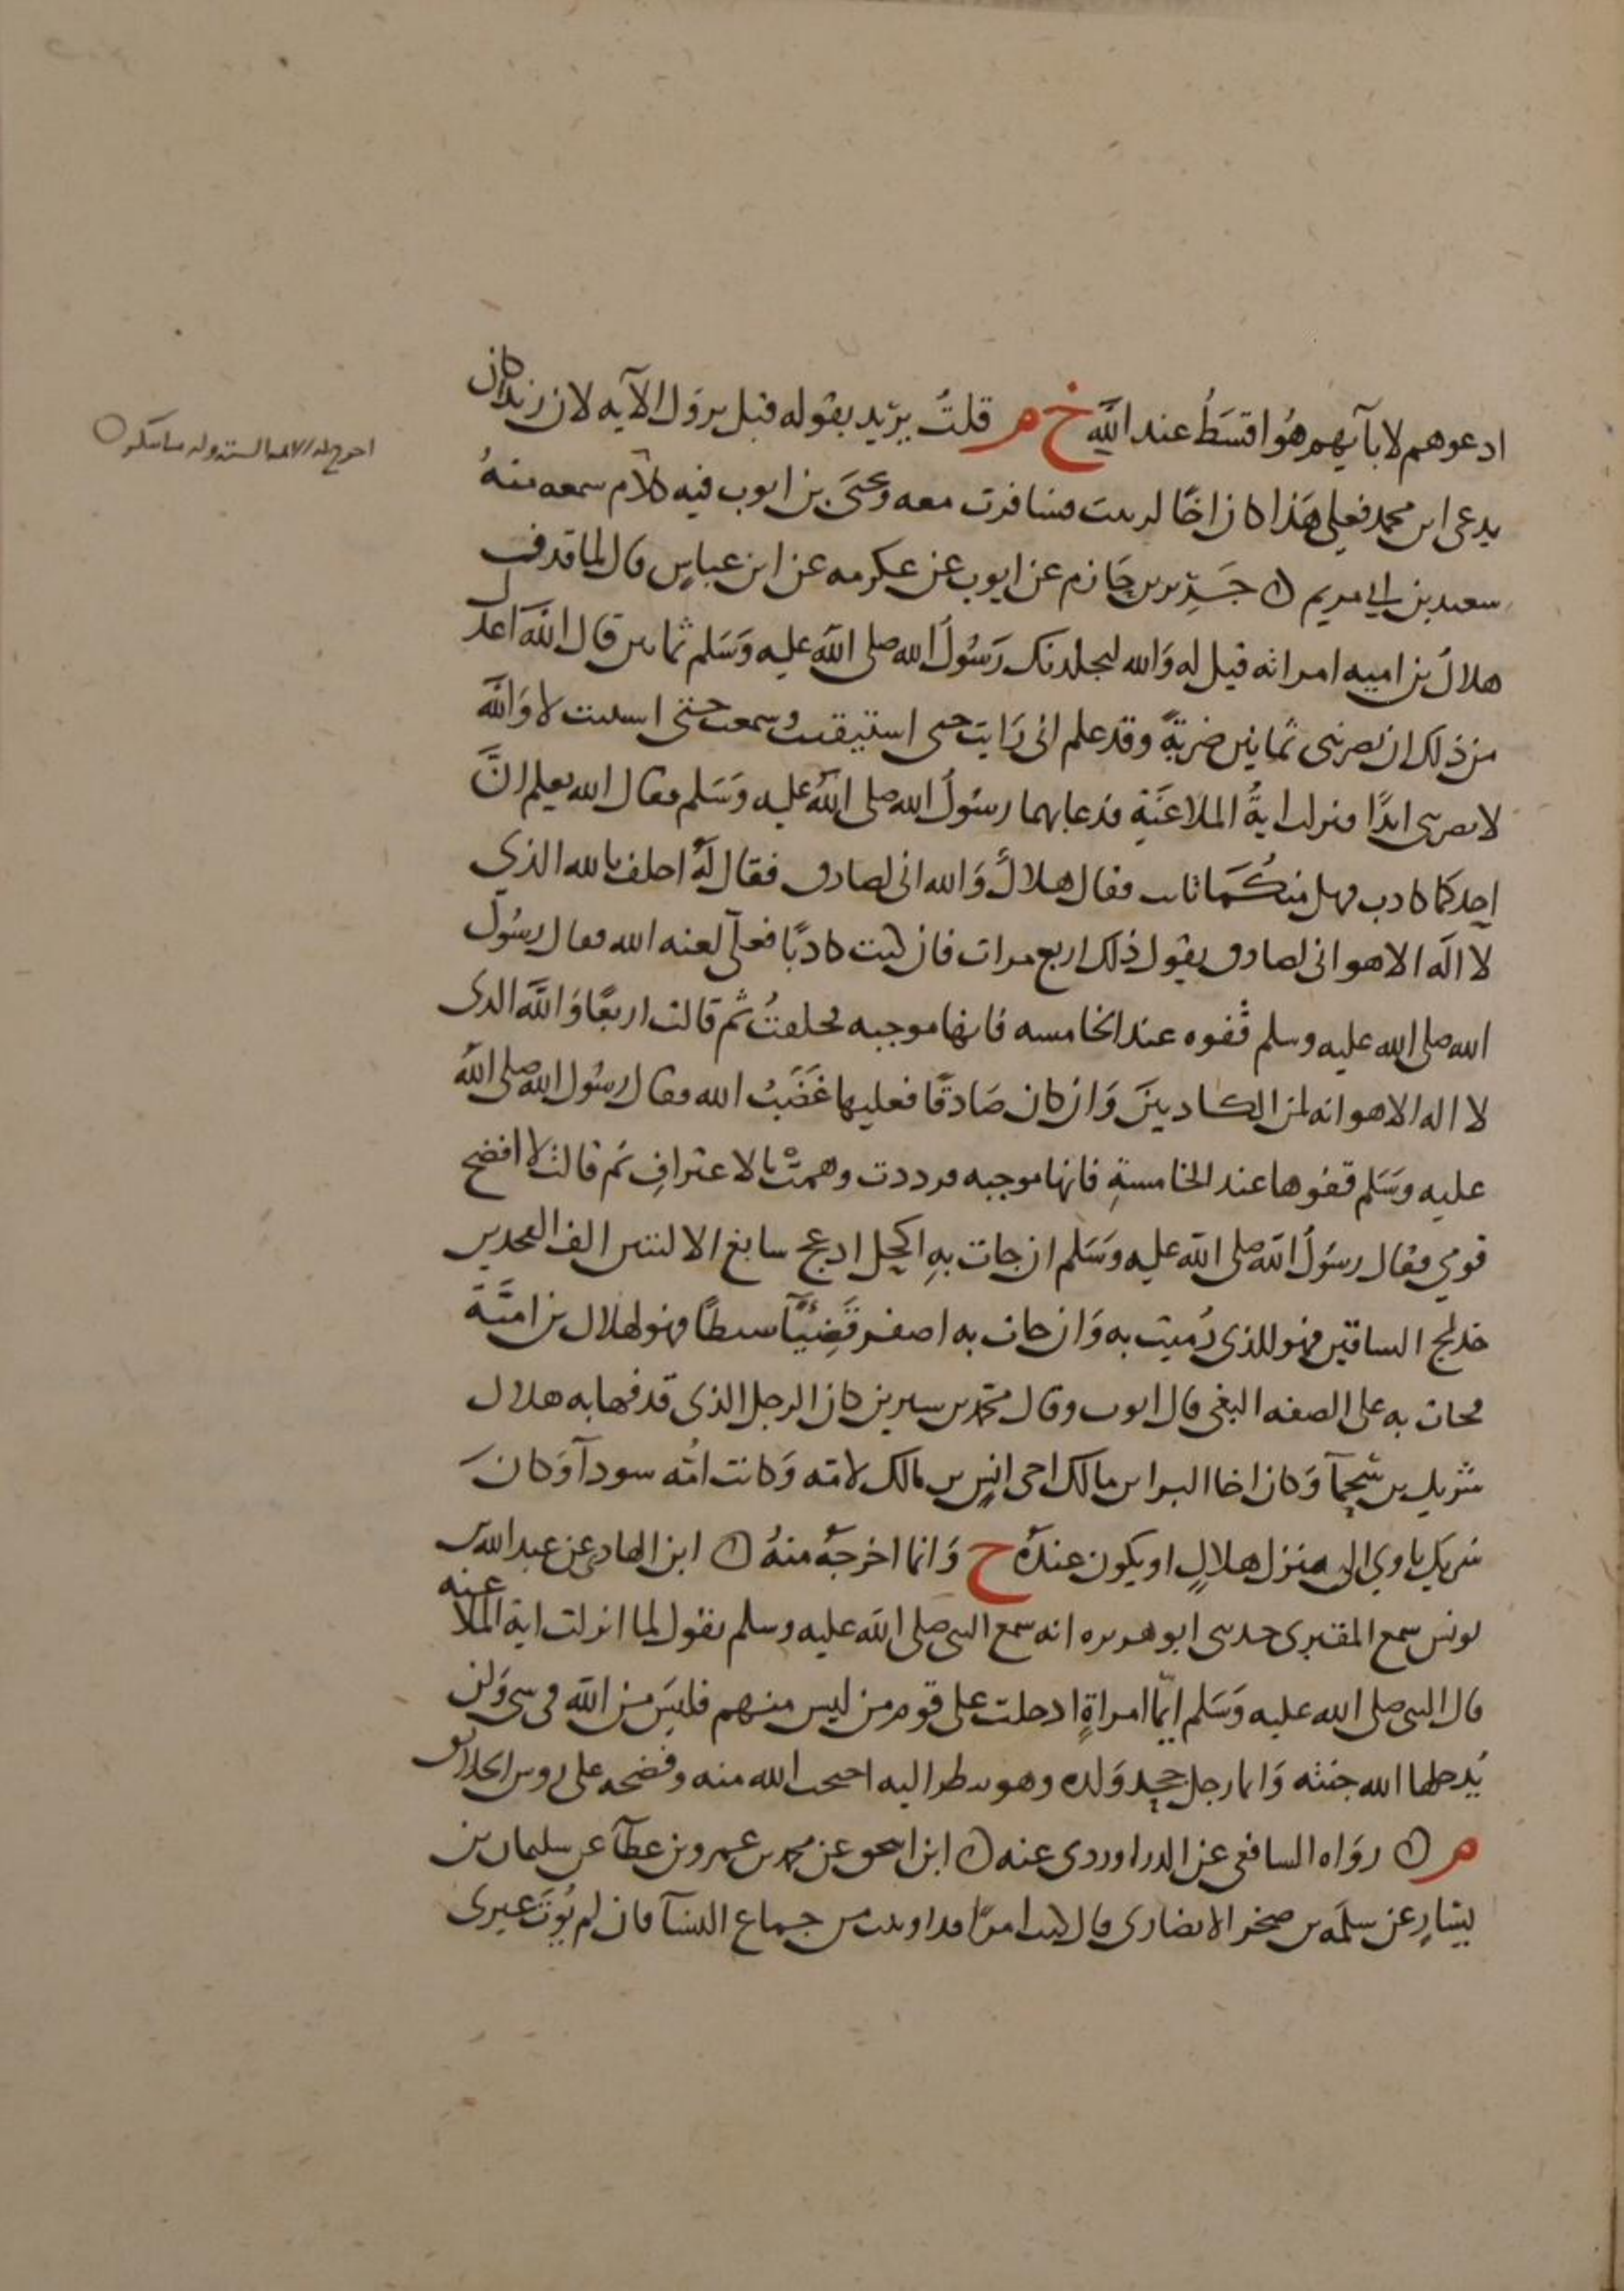 ادعوهم لابآيهم هُو اقسَطُ عند الله خ م قلتُ يريد بقوله قبل نزول الآيه لان زيدا كان
يدعى ابن محمد فعلى هَذا كان اخًا لزينب فسافرت معه ويحيَى بن ايوب فيه كلام سمعه منهُ
سعيد بن ابي مريم ن جَرير بن حَازم عن ايوب عن عكرمه عن ابن عباسٍ قال لما قدف
هلالُ بن اميه امراته قيل له وَالله ليجلدنك رَسُولُ الله صلى الله عليه وَسَلم ثمانين قال اللهَ اعدل
من ذلك ان يضربنى ثمانين ضربةً وقد علم انى رَايت حتى استيقنت وسمعت حتى استبنت لا وَالله
لا يضربنى ابدًا فنزلت ايةُ الملاعنَةِ فدعا بهما رسُولُ الله صلى الله عليه وَسَلم فقال الله يعلم انَّ
احدكما كاذب فهل منكُمَا تائب فقال هلالٌ وَالله انى لصادق فقال لهُ احلف بالله الذي
لا الَه الا هو انى لصادق يقول ذلك اربع مرات فان كنت كاذبًا فعلَي لعنه الله فقال رسُول
الله صلى الله عليه وسلم قفوه عند الخامسه فانها موجبه فحلفتُ ثم قالت اربعًا وَالله الذى
لا اله الا هو انه لمن الكاذبينَ وَان كان صَادقًا فعليها غَضَبُ الله فقال رسُول الله صلى الله
عليه وسَلم قفوها عند الخامسةِ فانها موجبه فرددت وهمتْ بالاعترافِ ثم قالت لا افضح
قومي فقال رسُولُ الله صلى الله عليه وَسَلم ان جات بهِ اكحل ادعج سابغ الاليتين الف الفخذين
خدلج الساقين فهو للذى رُميت به وَان جات به اصفر قَضِيًّا سبطًا فهو لهلال بن اميَّة
فجات به على الصفه البغى قال ايوب وقال محمد بن سيرين كان الرجل الذى قدفها به هلال
شريك بن سَحمآ وَكان اخا البرا بن مالك اخى انسِ بن مالك لامه وَكانت امُه سودآ وَكانَ
شريك ياوي الى منزل هلالٍ او يكون عندَهُ ح وَانما اخرجَهُ منهُ ن ابن الهادى عن عبد الله بن
يونس سمع المقبرى حدثنى ابو هريره انه سمع النبى صلى الله عليه وسلم يقول لما انزلت اية الملاعنه
قال النبى صلى الله عليه وَسَلم ايّما امراةٍ ادخلت على قوم من ليس منهم فليسَ من الله فى شى وَلن
يُدخلها الله جنته وَايما رجل جحد وَلده وهو ينظر اليه احتجب الله منه وفضحه على روس الخلائق
م ن روَاه الشافعى عن الدراوردى عنه ن ابن اسحق عن محمد بن عمرو بن عطآ عن سليمان بن
يسَارٍ عن سلمَه بن صخر الانصارى قال كنت امرًا قد اوتيت من جماع النسآ ما لم يُوتَ غيرى